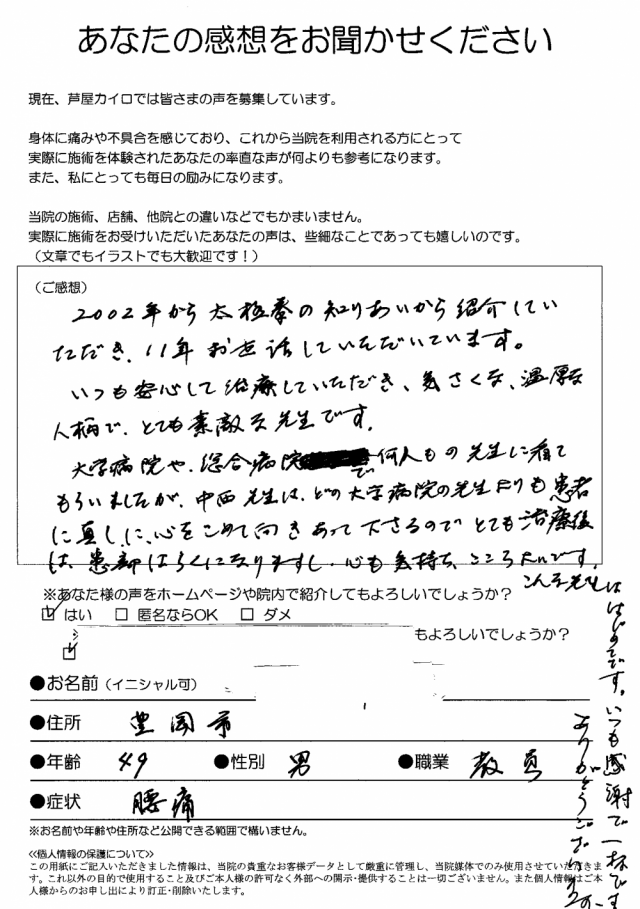 あなたの感想をお聞かせください
現在、芦屋カイロでは皆さまの声を募集しています。
身体に痛みや不具合を感じており、これから当院を利用される方にとって
実際に施術を体験されたあなたの率直な声が何よりも参考になります。
また、私にとっても毎日の励みになります。
当院の施術、店舗、他院との違いなどでもかまいません。
実際に施術をお受けいただいたあなたの声は、些細なことであっても嬉しいのです。
（文章でもイラストでも大歓迎です！）
（ご感想）
2002年から太極拳の知りあいから紹介してい
ただき、11年お世話していただいています。
いつも安心して治療していただき、気さくな、温厚な
人柄で、とても素敵な先生です。
大学病院や、総合病院で何人もの先生に看て
もらいましたが、中西先生は、どの大学病院の先生よりも患者
に真しに、心をこめて向きあって下さるのでとても治療後
は、患部はらくになりますし、心も気持ち、こころよいです。
こんな先生
ははじめてです。いつも感謝で一杯です
ありがとうございます。
※あなた様の声をホームページや院内で紹介してもよろしいでしょうか？
☑ はい □ 匿名ならOK □ ダメ
もよろしいでしょうか？
☑
●お名前（イニシャル可）
●住所 豊岡市
●年齢 49 ●性別 男 ●職業 教員
●症状 腰痛
※お名前や年齢や住所など公開できる範囲で構いません。
≪個人情報の保護について≫
この用紙にご記入いただきました情報は、当院の貴重なお客様データとして厳重に管理し、当院媒体でのみ使用させていただきま
す。これ以外の目的で使用すること及びご本人様の許可なく外部への開示・提供することは一切ございません。また個人情報はご本
人様からのお申し出により訂正・削除いたします。